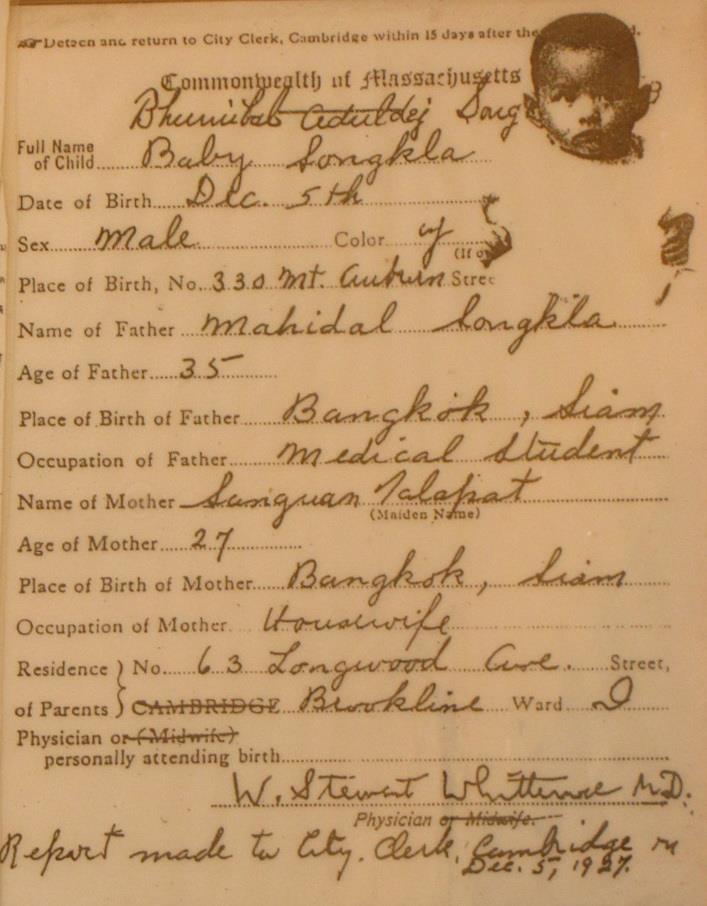 Detach and return to City Clerk, Cambridge within 15 days after the
Commonwealth of Massachusetts
Bhumibol Aduldej Song
Full Name of Child Baby Songkla
Date of Birth Dec. 5th
Sex male Color y
(If o
Place of Birth, No. 330 Mt. Auburn Stree
Name of Father Mahidal Songkla
Age of Father 35
Place of Birth of Father Bangkok, Siam
Occupation of Father Medical Student
Name of Mother Sanguan Talapat
(Maiden Name)
Age of Mother 27
Place of Birth of Mother Bangkok, Siam
Occupation of Mother Housewife
Residence No. 63 Longwood Ave. Street,
of Parents CAMBRIDGE Brookline Ward
Physician or (Midwife)
personally attending birth
W. Stewart Whittemore M.D.
Physician or Midwife.
Report made to City. Clerk, Cambridge
Dec. 5, 1927.